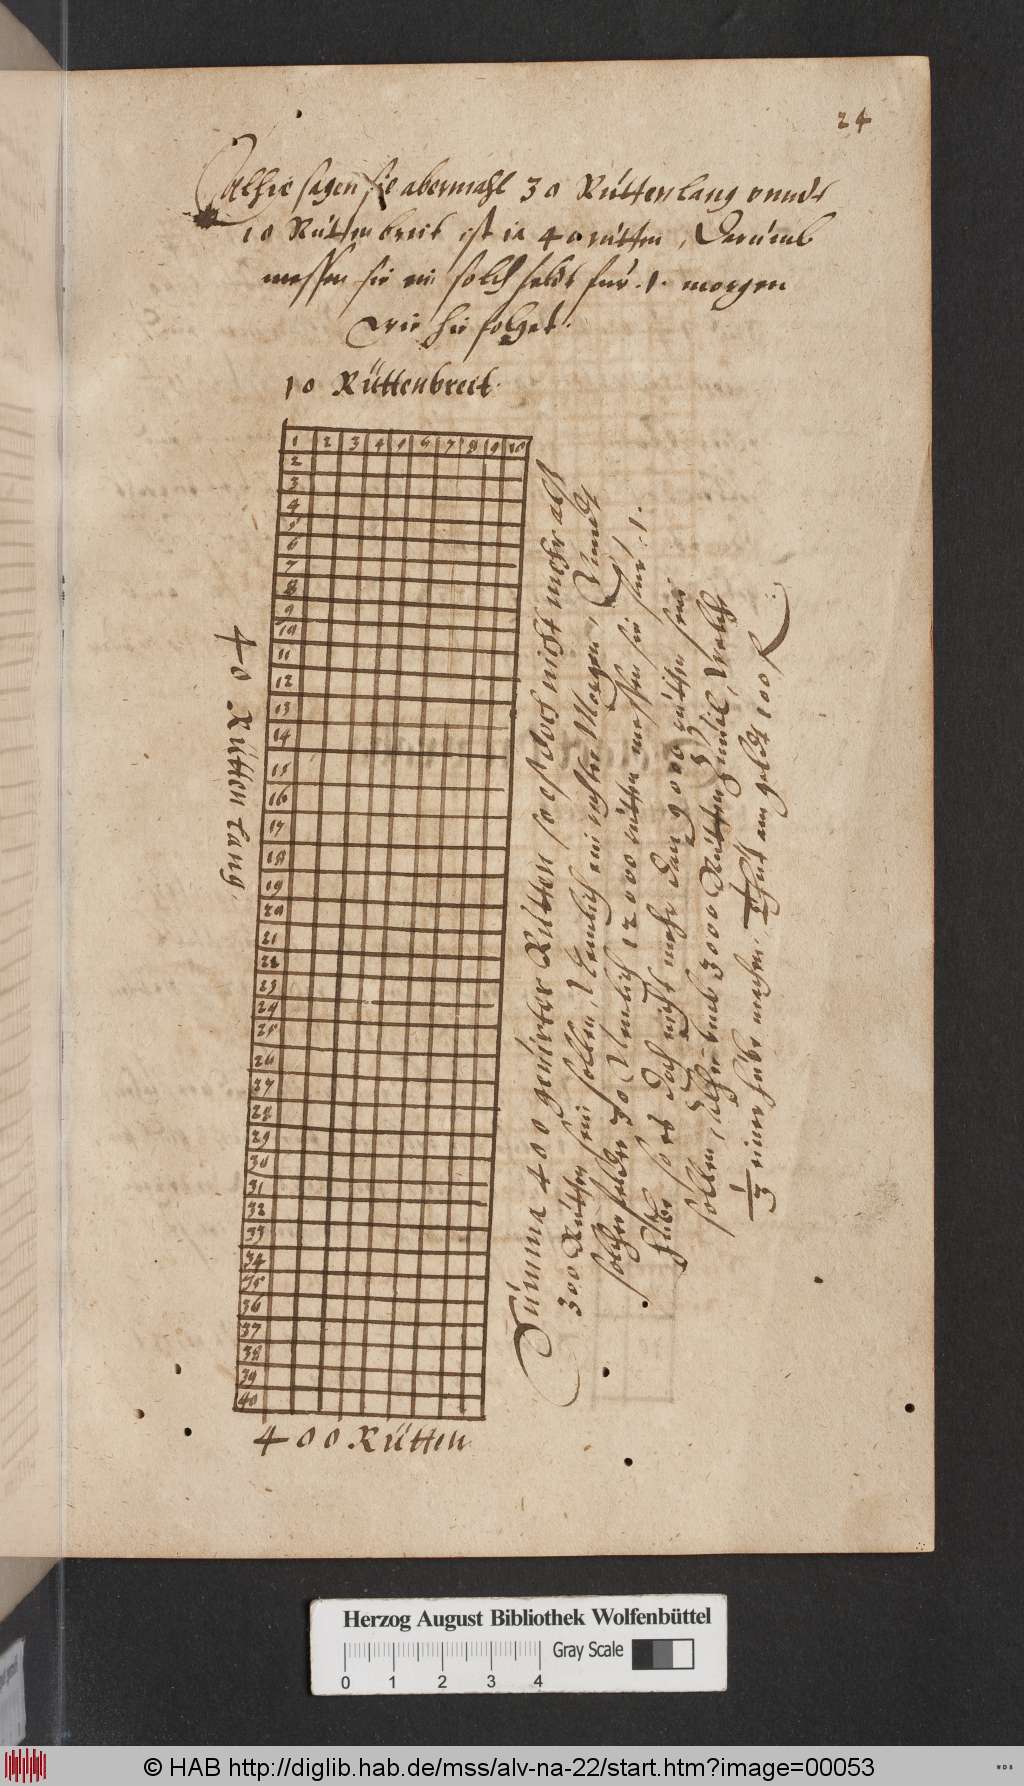 24
Alhie sagen sie abermahl 30 Rütten lang vnndt
10 Rütten breit ist ie 40 rütten, Darumb
messen sie ein solch feldt für .1. morgen
wie hie folget.
10 Rüttenbreit.
1 2 3 4 5 6 7 8 9 10
2
3
4
5
6
7
8
9
10
11
12
13
14
15
16
17
18
19
20
21
22
23
24
25
26
27
28
29
30
31
32
33
34
35
36
37
38
39
40
40 Rütten lang.
400 Rütten
Summa 400 gevirter Rutten so es doch nicht mehr alß
300 Rutten sein sollen, Nemlich ein rechter Morgen, Vnnd
solcher felder 30 Nemlich 12000 rutten messen sie fur .1.
Hube so es doch nicht mehr dan 9000 rutten sein
sollen, Alhie vmb 3000 Rutten zuuil, Welchs
1/3 einer hube machen. Thut am geldt 100
Herzog August Bibliothek Wolfenbüttel
0 1 2 3 4
Gray Scale
© HAB http://diglib.hab.de/mss/alv-na-22/start.htm?image=00053